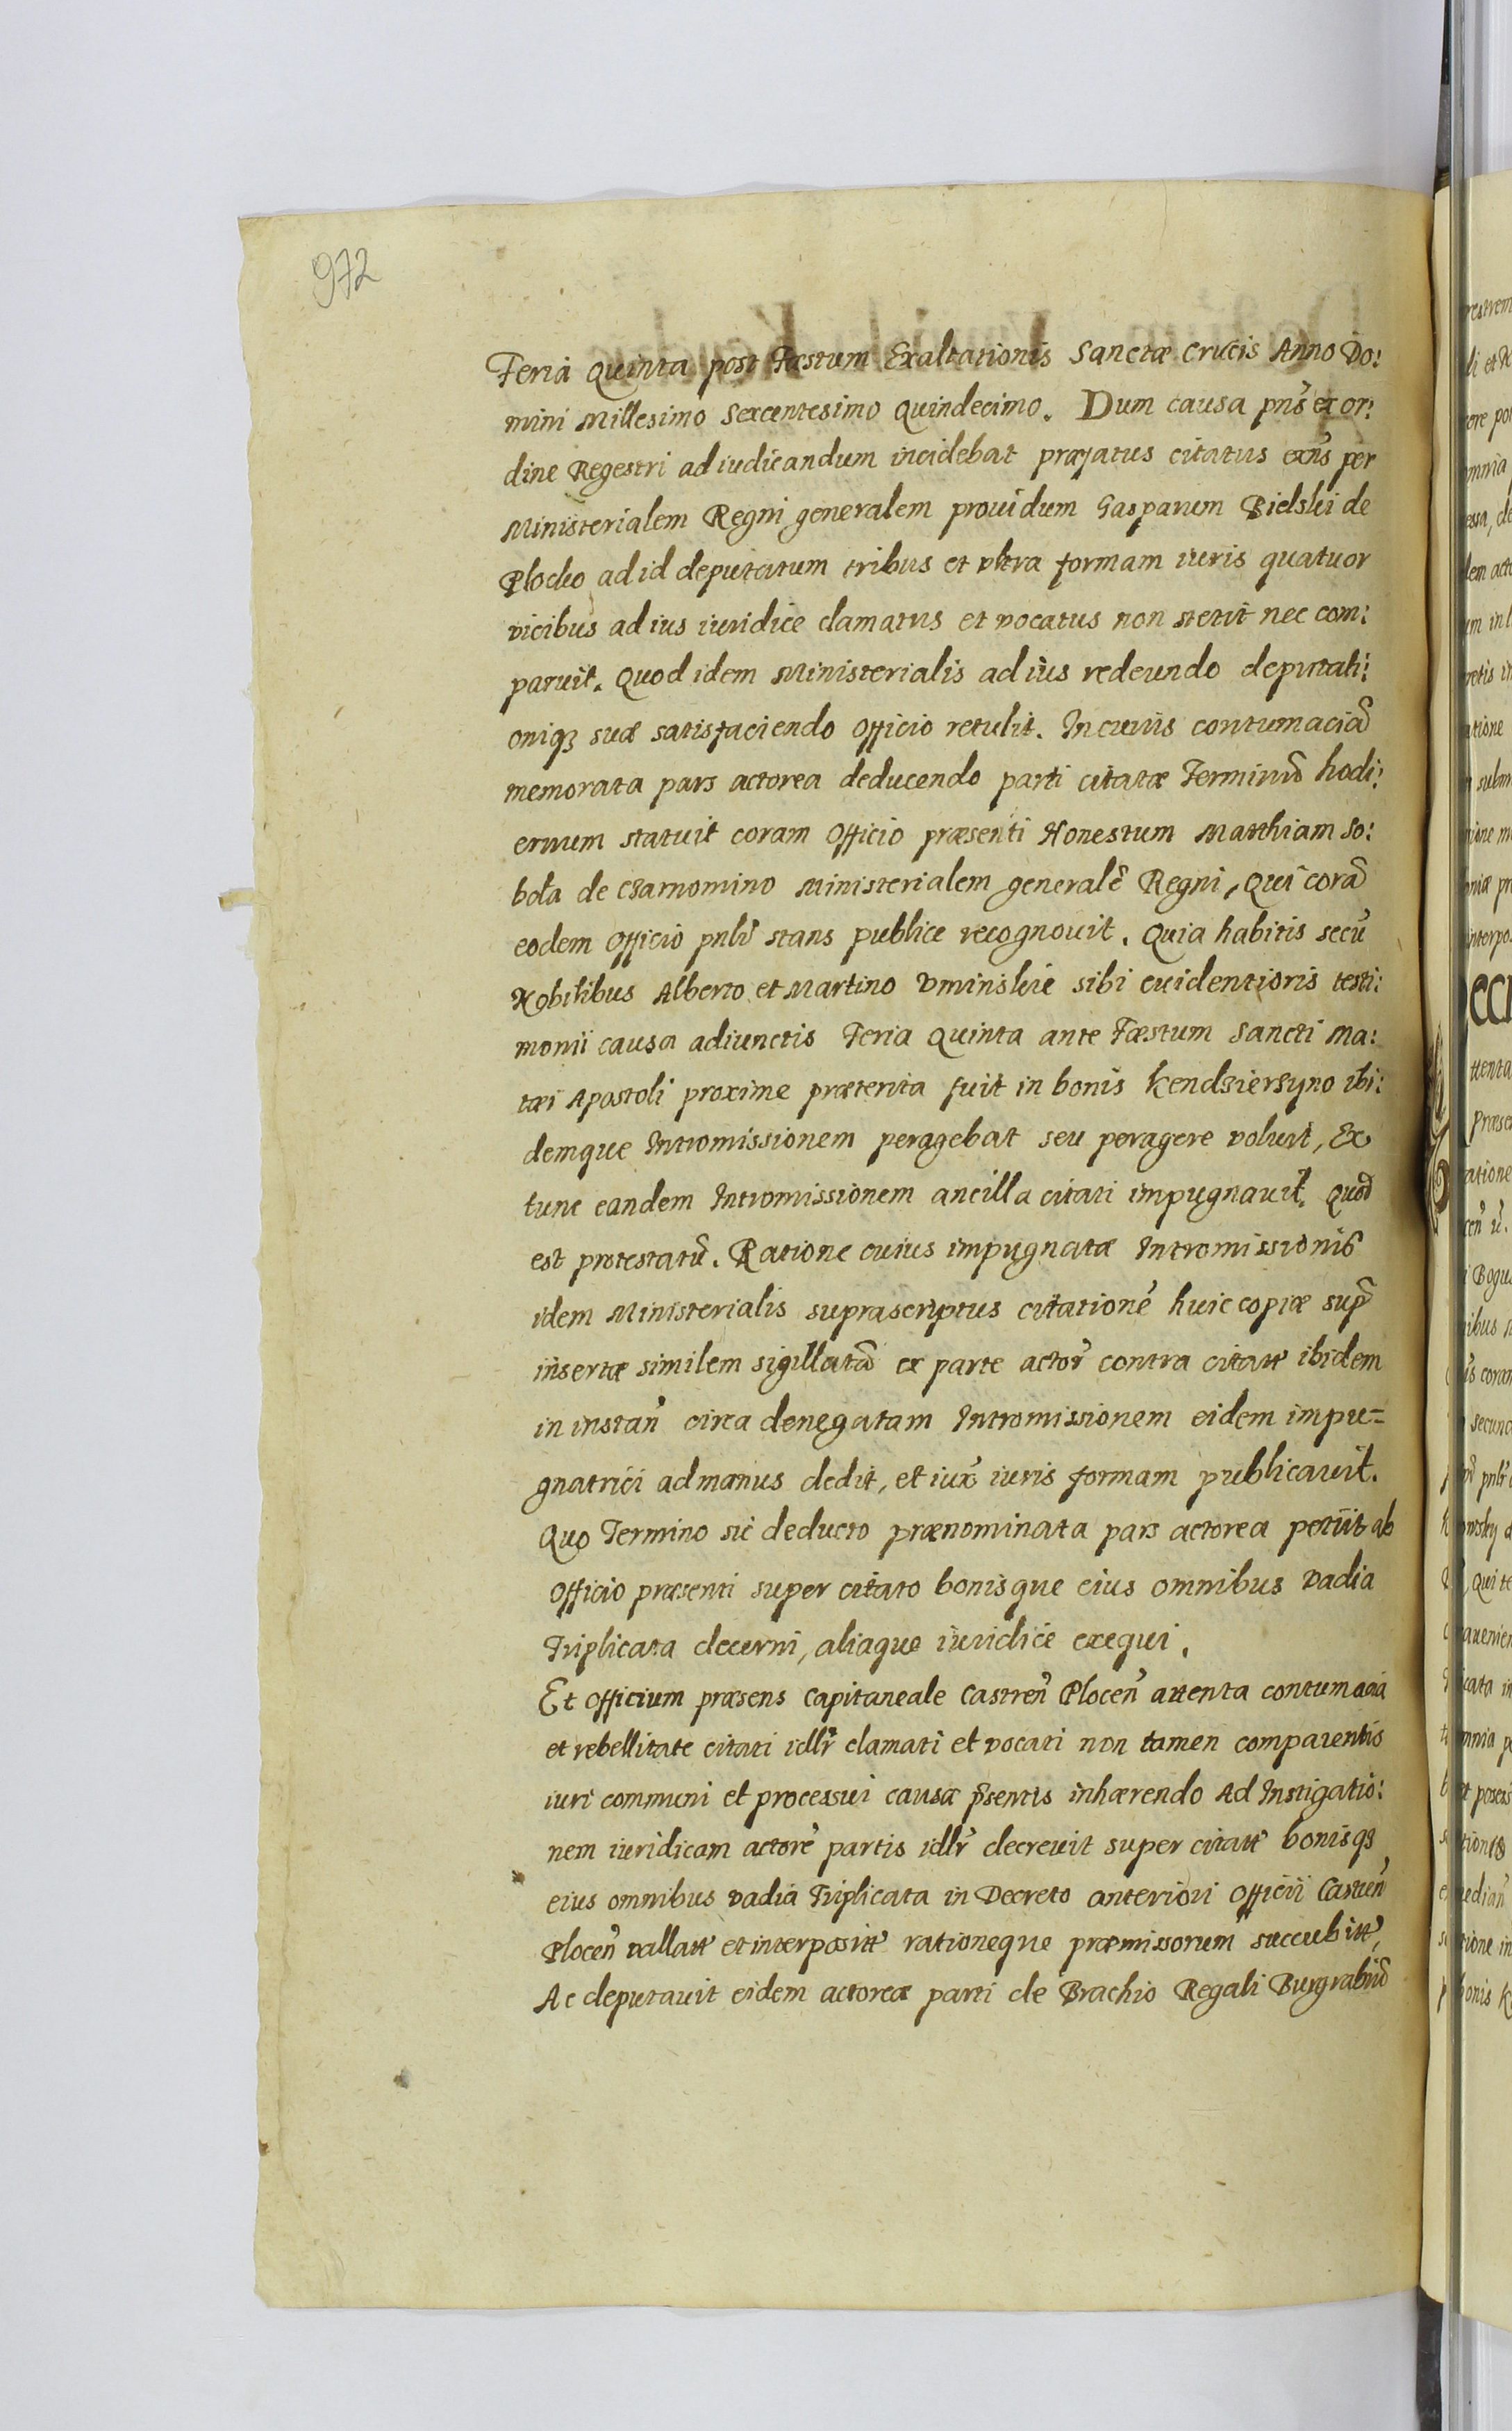 972
Feria Quinta post Fæstum Exaltationis Sanctæ Crucis Anno Do:
mini Millesimo Sexcentesimo Quindecimo. Dum causa pñs ex or:
dine Regestri ad iudicandum incidebat præfatus citatus exñs per
Ministerialem Regni generalem prouidum Gasparum Bielski de
Plocko ad id deputatum tribus et vltra formam iuris quatuor
vicibus ad ius iuridice clamatus et vocatus non stetit nec com:
paruit. Quod idem Ministerialis ad ius redeundo deputati:
oniq3 suæ satisfaciendo Officio retulit. In cuius contumaciã
memorata pars actorea deducendo parti citatæ Terminũ hodi:
ernum statuit coram Officio præsenti Honestum Matthiam So:
bota de Czarnomino Ministerialem generalẽ Regni, Qui corã
eodem Officio pnlr̃ stans publice recognouit. Quia habitis secũ
Nobilibus Alberto et Martino Vminskie sibi euidentioris testi:
monii causa adiunctis Feria Quinta ante Fæstum Sancti Ma:
tæi Apostoli proxime præterita fuit in bonis Kendzierzyno ibi:
demque Intromissionem peragebat seu peragere voluit, Ex
tunc eandem Intromissionem ancilla citati impugnauit. Quod
est protestatũ. Ratione cuius impugnatæ Intromissionis
idem Ministerialis suprascriptus citationẽ huic copiæ supã
insertæ similem sigillatã ex parte actor̃ contra citatt ibidem
in instañ circa denegatam Intromissionem eidem impu=
gnatrici ad manus dedit, et iux̃ iuris formam publicauit.
Quo Termino sic deducto prænominata pars actorea petiit ab
Officio præsenti super citato bonisque eius omnibus Vadia
Triplicata decerni, aliaque iuridice exequi.
Et Officium præsens Capitaneale Castreñ Ploceñ attenta contumacia
et rebellitate citati idlr̃ clamati et vocati non tamen comparentis
iuri communi et processui causæ p̃sentis inhærendo Ad Instigatio:
nem iuridicam actorẽ partis idlr̃ decreuit super citatt bonisq3
eius omnibus vadia Triplicata in Decreto anteriori Officii Castreñ
Ploceñ vallatt et interpositt rationeque præmissorum succubitt,
Ac deputauit eidem actoreæ parti de Brachio Regali Burgrabiũ